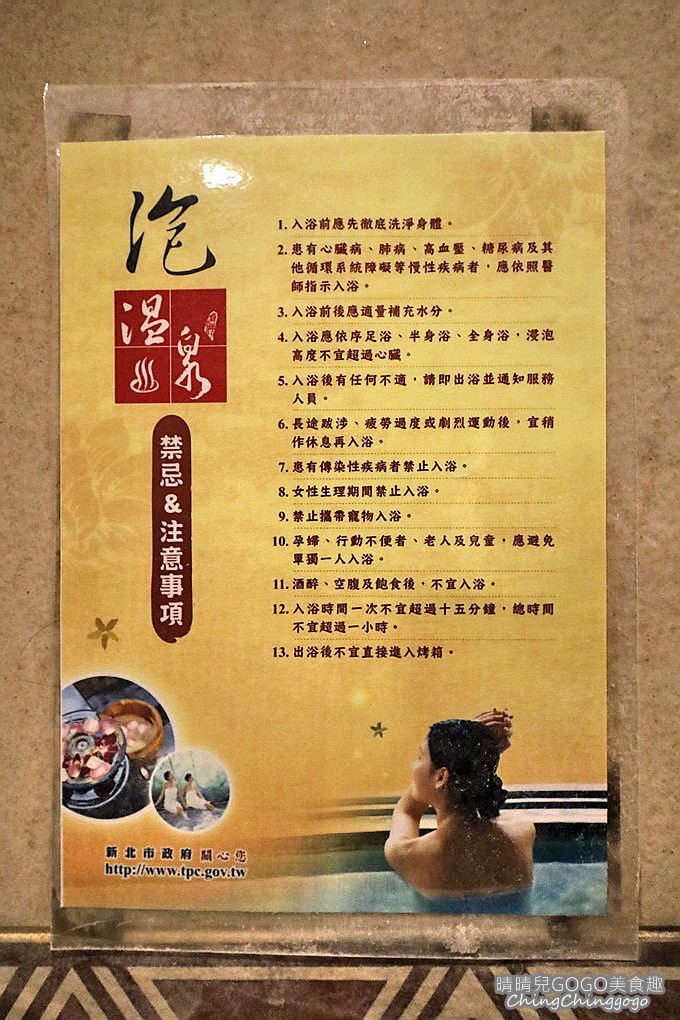 泡
溫泉
禁忌&注意事項
1. 入浴前應先徹底洗淨身體。
2. 患有心臟病、肺病、高血壓、糖尿病及其
他循環系統障礙等慢性疾病者，應依照醫
師指示入浴。
3. 入浴前後應適量補充水分。
4. 入浴應依序足浴、半身浴、全身浴，浸泡
高度不宜超過心臟。
5. 入浴後有任何不適，請即出浴並通知服務
人員。
6. 長途跋涉、疲勞過度或劇烈運動後，宜稍
作休息再入浴。
7. 患有傳染性疾病者禁止入浴。
8. 女性生理期間禁止入浴。
9. 禁止攜帶寵物入浴。
10. 孕婦、行動不便者、老人及兒童，應避免
單獨一人入浴。
11. 酒醉、空腹及飽食後，不宜入浴。
12. 入浴時間一次不宜超過十五分鐘，總時間
不宜超過一小時。
13. 出浴後不宜直接進入烤箱。
新北市政府 關心您
http://www.tpc.gov.tw
晴晴兒GOGO美食趣
ChingChinggogo